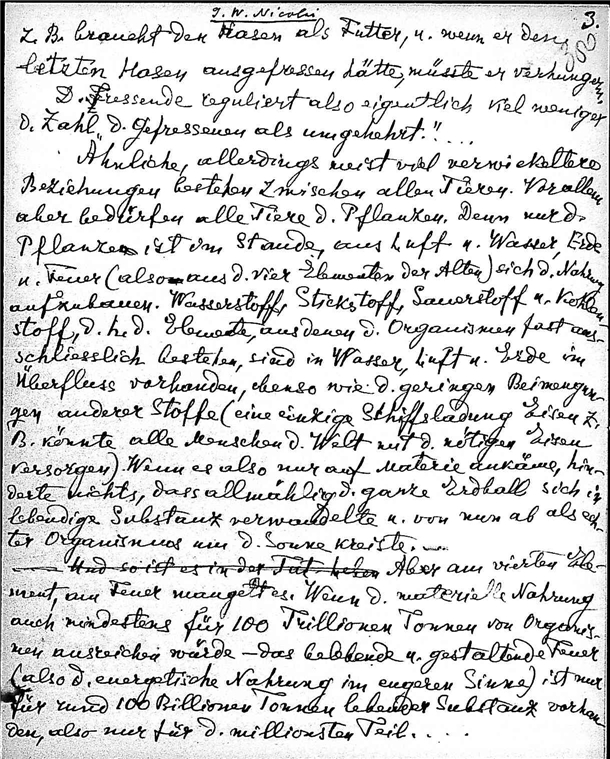 J. W. Nicolai
3.
z. B. braucht den Hasen als Futter, u. wenn er den
letzten Hasen ausgefressen hätte, müsste er verhungern.
D. Fressende reguliert also eigentlich viel weniger
d. Zahl d. Gefressenen als umgekehrt." ...
Ähnliche, allerdings meist viel verwickeltere
Beziehungen bestehen zwischen allen Tieren. Vor allem
aber bedürfen alle Tiere d. Pflanzen. Denn nur d.
Pflanzen ist im Stande, aus Luft u. Wasser, Erde
u. Feuer (also aus d. vier Elementen der Alten) sich d. Nahrung
aufzubauen. Wasserstoff, Stickstoff, Sauerstoff u. Kohlen
stoff, d. h. d. Elemente, aus denen d. Organismen fast aus-
schliesslich bestehen, sind in Wasser, Luft u. Erde im
Überfluss vorhanden, ebenso wie d. geringen Beimengun-
gen anderer Stoffe (eine einzige Schiffsladung Eisen z.
B. könnte alle Menschen d. Welt mit d. nötigen Eisen
versorgen) Wenn es also nur auf Materie ankäme, hin-
derte nichts, dass allmählig d. ganze Erdball sich in
lebendige Substanz verwandelte u. von nun ab als ech-
ter Organismus um d. Sonne kreiste. ...
Und so ist es in der Tat Aber am vierten Ele-
ment, am Feuer mangelt es. Wenn d. materielle Nahrung
auch mindestens für 100 Trillionen Tonnen von Organis-
men ausreichen würde – das belebende u. gestaltende Feuer
(also d. energetische Nahrung im engeren Sinne) ist nur
für rund 100 Billionen Tonnen lebender Substanz vorhan
den, also nur für d. millionsten Teil. ....